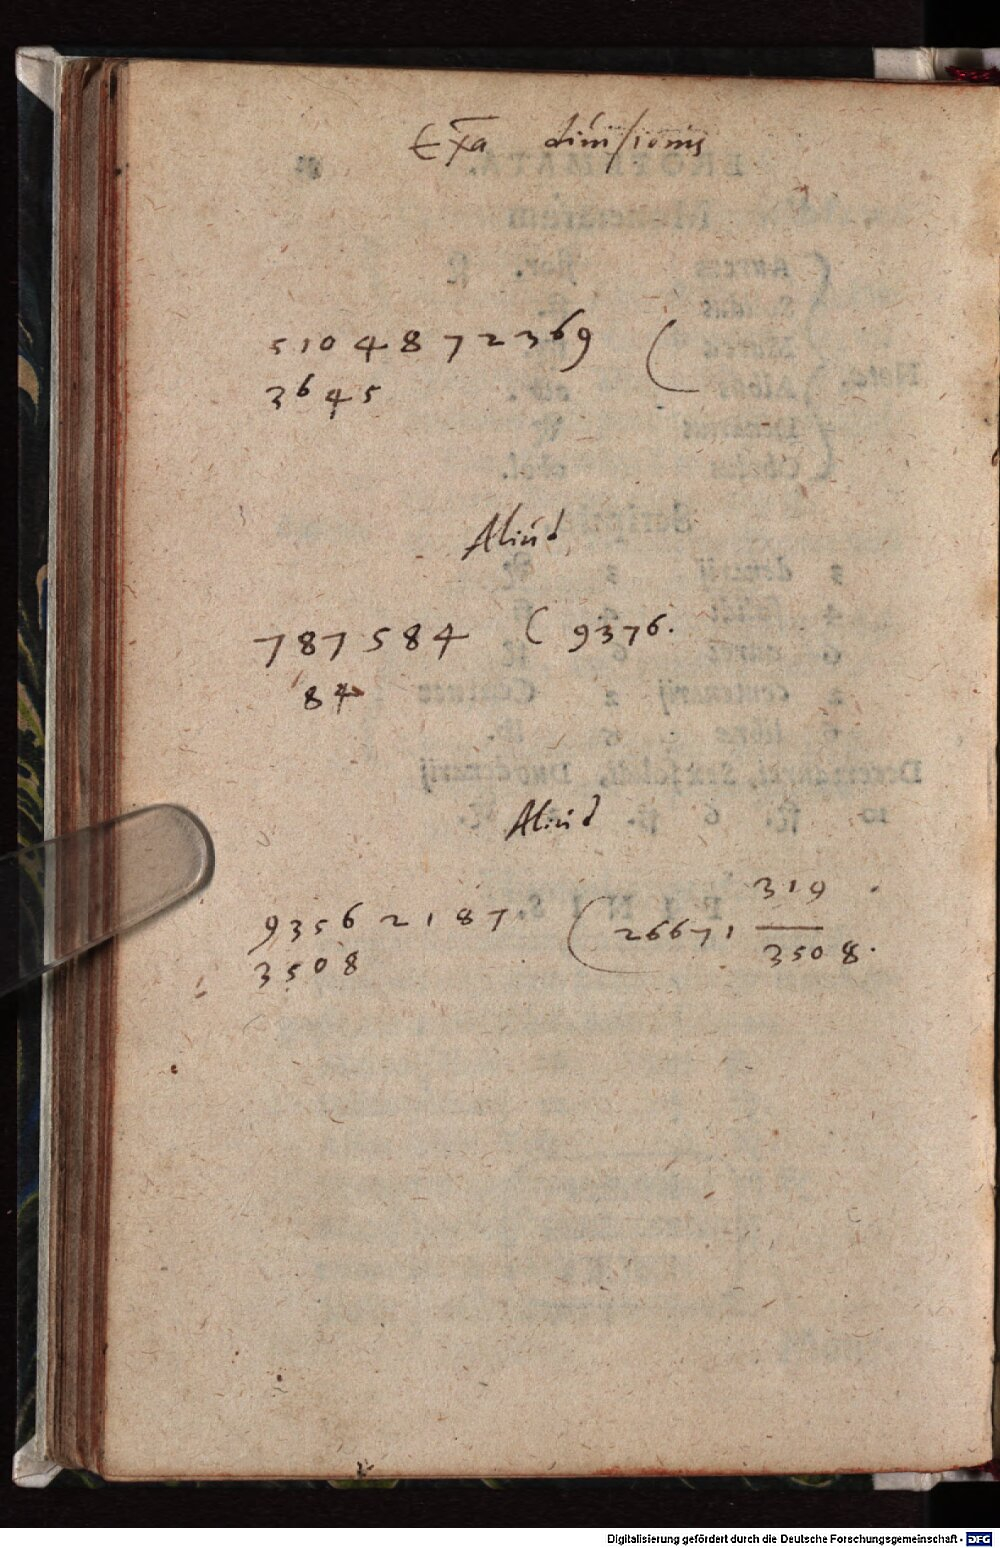 Exa divisionis
5104872369 (
3645
Aliud
787584 ( 9376.
84
Aliud
319
93562187 ( 26671 —
3508 3508.
Digitalisierung gefördert durch die Deutsche Forschungsgemeinschaft - DFG